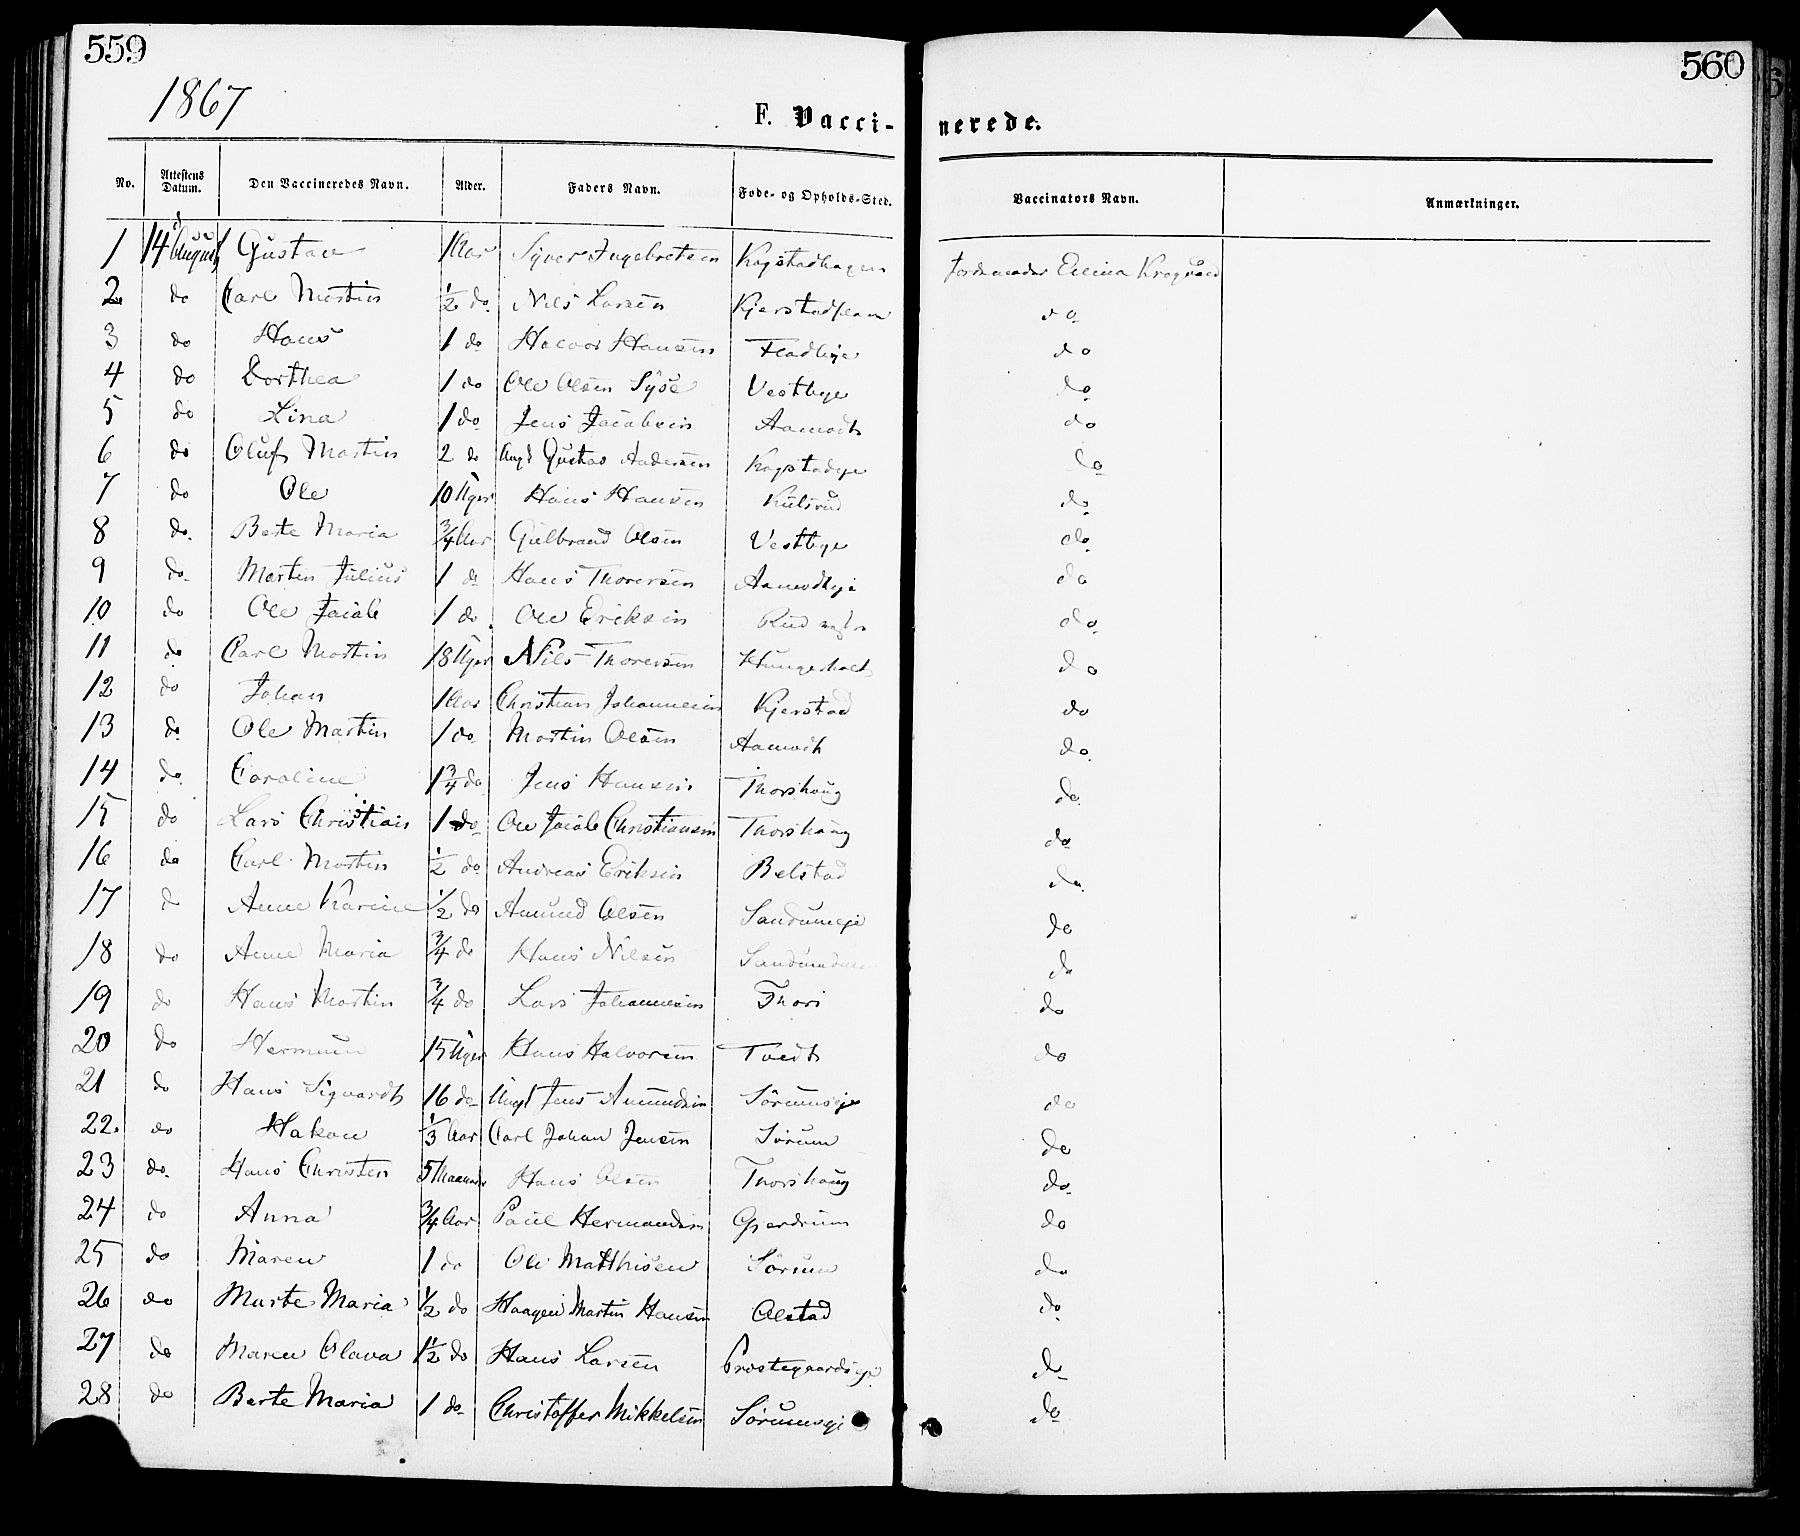 559
560
1867
F. Vaccinerede.
No. Attestens Datum. Den Vaccineredes Navn. Alder. Faders Navn. Føde- og Opholds-Sted. Vaccinators Navn. Anmærkninger.
1 14 August Gustav 1 Aar Syver Ingebretsen Jordemoder
2 do Carl Martin 1/2 do Nils Larsen do
3 do Hans 1 do Halvor Hansen do
4 do Dorthea 1 do Ole Olsen Vestbye do
5 do Lina 1 do Jens Jacobsen Aamodt do
6 do Oluf Martin 2 do Ungk Gustav Andersen do
7 do Ole 10 Uger Hans Hansen Kulsrud do
8 do Berte Maria 3/4 Aar Gulbrand Olsen Vestbye do
9 do Martin Julius 1 do Hans Thoresen Aamodteje do
10 do Ole Jacob 1 do Ole Eriksen Rud do
11 do Carl Martin 18 Uger Nils Thoresen Hungerholt do
12 do Johan 1 Aar Christian Johannesen Kjerstad do
13 do Ole Martin 1 do Martin Olsen Aamodt do
14 do Caroline 1 3/4 do Jens Hansen Thorshaug do
15 do Lars Christian 1 do Ole Jacob Christiansen Thorshaug do
16 do Carl Martin 1/2 do Andreas Eriksen Belstad do
17 do Anne Karine 1/2 do Amund Olsen Sandumeje do
18 do Anne Maria 3/4 do Hans Nilsen do
19 do Hans Martin 3/4 do Lars Johannesen do
20 do Herman 15 Uger Hans Halvorsen Tvedt do
21 do Hans Sigvardt 16 do Ungk Jens Amundsen Sörumseje do
22. do Hakon 1/3 Aar Carl Johan Jensen Sörum do
23 do Hans Christen 5 Maaneder Hans Olsen Thorshaug do
24 do Anna 3/4 Aar Paul Hermandsen Gjerdrum do
25 do Maren 1 do Ole Matthisen Sörum do
26 do Marte Maria 1/2 do Haagen Martin Hansen Olstad do
27 do Maren Olava 1 1/2 do Hans Larsen Prestegaardseje do
28 do Berte Maria 1 do Christoffer Mikkelsen Sörumseje do